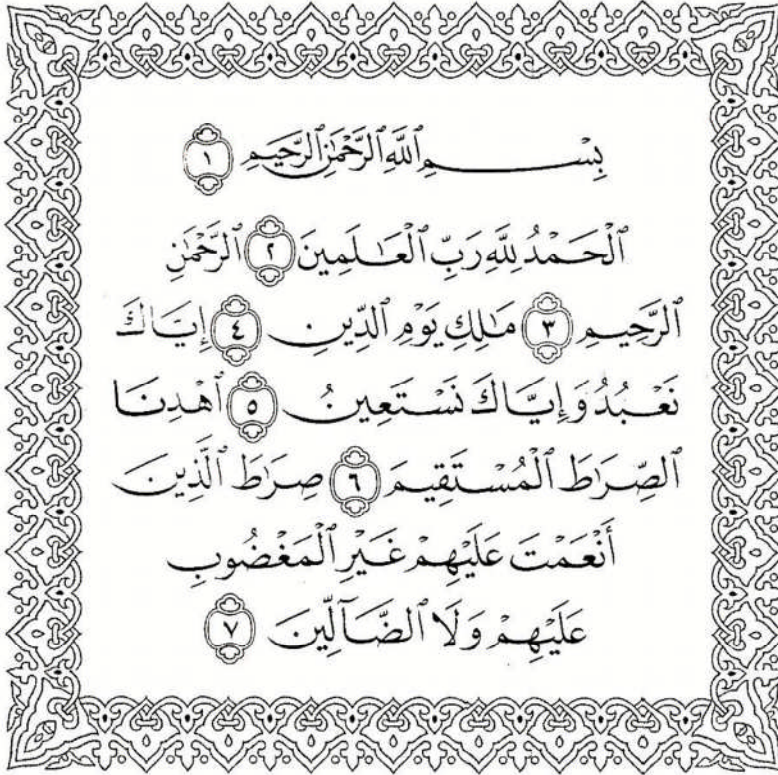 بِسْمِ ٱللَّهِ ٱلرَّحْمَٰنِ ٱلرَّحِيمِ ١
ٱلْحَمْدُ لِلَّهِ رَبِّ ٱلْعَٰلَمِينَ ٢ ٱلرَّحْمَٰنِ
ٱلرَّحِيمِ ٣ مَٰلِكِ يَوْمِ ٱلدِّينِ ٤ إِيَّاكَ
نَعْبُدُ وَإِيَّاكَ نَسْتَعِينُ ٥ ٱهْدِنَا
ٱلصِّرَٰطَ ٱلْمُسْتَقِيمَ ٦ صِرَٰطَ ٱلَّذِينَ
أَنْعَمْتَ عَلَيْهِمْ غَيْرِ ٱلْمَغْضُوبِ
عَلَيْهِمْ وَلَا ٱلضَّآلِّينَ ٧